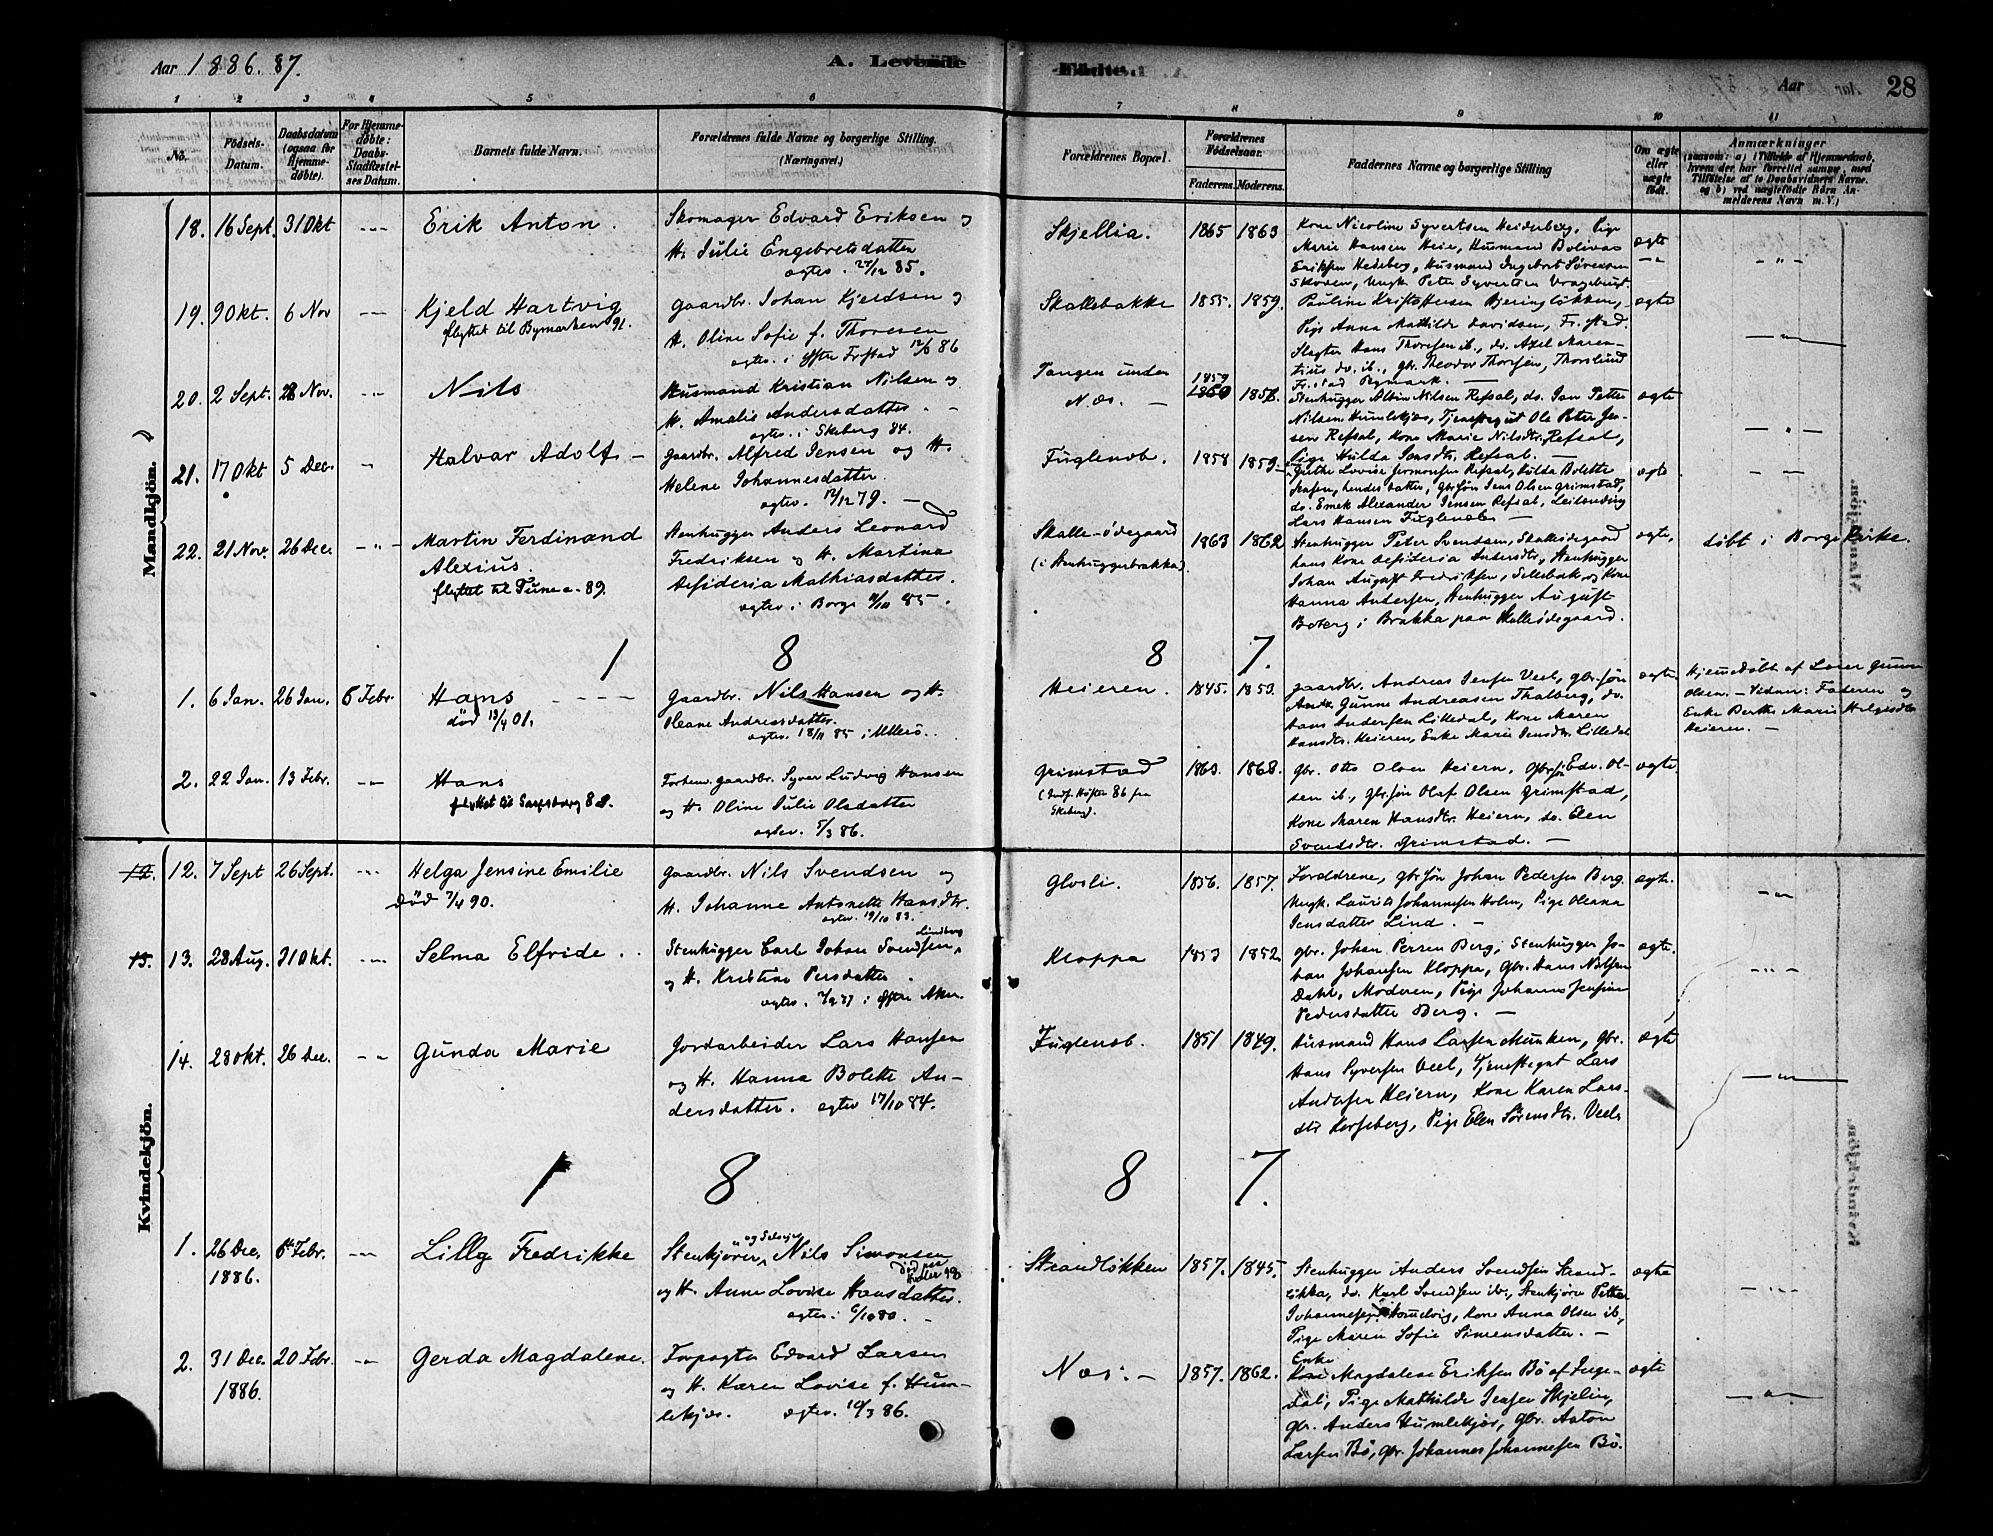 Aar 1886. 87.
A. Levende
Fødte.
Aar
28
1 2 3 4 5 6 7 8 9 10 11
No.
Födsels-
Datum.
Daabsdatum
(ogsaa for
Hjemme-
døbte).
For Hjemme-
døbte:
Daabs-
Stadfæstel-
ses Datum.
Barnets fulde Navn.
Forældrenes fulde Navne og borgerlige Stilling.
(Næringsvei.)
Forældrenes Bopæl.
Forældrenes
Fødselsaar.
Faderens. Moderens.
Faddernes Navne og borgerlige Stilling
Om ægte
eller
uægte
født.
Anmærkninger
(saasom: a) i Tilfælde af Hjemmedaab,
hvem der har forrettet samme, med
Tilføielse af to Daabsvidners Navne.
og b) ved uægtefødte Børn An-
melderens Navn m. V.)
Mandkjön.
18. 16 Sept. 31 Okt
Erik Anton.
Skomager Edvard Eriksen og
H. Julie Engebretsdatter
ægtev. 27/12 85.
Skjellia. 1865 1863
Kone Nicoline Syvertsen Heideberg, Pige
Marie Hansen Heie, Husmand
Eriksen Hedeberg, Husmand Ingebret Sørensen
Skoven, Ungk. Peter Syvertsen
ægte
19. 9 Okt. 6 Nov
Kjeld Hartvig
flyttet til Bymarken 91.
Gaardbr. Johan Kjeldsen og
H. Oline Sofie f. Thoresen
ægtev. i Østre Frstad 12/3 86
Skallebakke 1855. 1859.
Pauline Kristoffersen Bjeringløkken,
Pige Anna Mathilde Davidsen, Fr.stad.
Slagter Hans Thoresen ib., do. Axel Maren-
tius do. ib., gbr. Theodor Thorsen, Thorslund
Fr.stad Bymark.
ægte
20. 2 Sept. 28 Nov.
Nils
Husmand Kristian Nilsen og
H. Amalie Andersdatter.
ægtev. i Skeberg 84.
Tangen under
Næs.
1859
1860 1858.
Stenhugger Albin Nilsen Refsal, do. Jan Petter
Nilsen Humlekjær, Tjenestegut Ole Peter Jen-
sen Refsal, Kone Marie Nilsdtr. Refsal,
Pige Hulda Jonsdtr. Refsal.
ægte
21. 17 Okt 5 Dec.
Halvar Adolf
Gaardbr. Alfred Jensen og H.
Helene Johannesdatter.
ægtev. 12/12 79.
Fuglenæb. 1858 1859
Lovise Jermonsen Refsal, Hilda Bolette
Jensen, hendes datter, gbr.søn Jens Olsen Grimstad,
do. Emek Alexander Jensen Refsal, Leilænding
Lars Hansen Fuglenæb
ægte
22. 21 Nov. 26 Dec.
Martin Ferdinand
Alexius.
flyttet til Tune a. 89.
Stenhugger Anders Leonard
Fredriksen og H. Martina
Desideria Mathiasdatter.
ægtev. i Borge 85.
Skalle-ødegaard
(i Stenhuggerbrakka)
1863 1862
Stenhugger Peter Svendsen, Skalleødegaard
hans Kone Desideria Andersdtr, Stenhugger
Johan August Fredriksen, Sellebak og Kone
Hanna Andersen, Stenhugger August
Boberg i Brakka paa Skalleødegaard.
ægte,
døbt i Borge Kirke.
1 8 8 7.
1. 6 Jan. 26 Jan. 6 Febr
Hans
död 13/4 01.
Gaardbr. Nils Hansen og H.
Oleane Andreasdatter.
ægtev. 18/11 85 i Ullerö.
Heieren. 1845. 1853.
Gaardbr. Andreas Jensen Veel, gbr.søn
Gunne Andreasen Thalberg, do.
Hans Andersen Lilledal, Kone Maren
Hansdtr. Heieren, Enke Marie Jensdtr. Lilledal
ægte.
Hjemdøbt af Lærer Gunne
Olsen. - Vidner: Faderen og
Enke Berthe Marie Helgesdtr
Heieren.
2. 22 Jan. 13 Febr.
Hans
flyttet til Sarpsborg 88.
Forhenv. gaardbr. Syver Ludvig Hansen
og H. Oline Julie Olsdatter
ægtev. 5/3 86.
Grimstad
(Indf. Høsten 86 fra
Skeberg).
1863 1868.
Gbr. Otto Olsen Heiern, Gbr.søn Edv. Ol-
sen ib., Gbr.søn Olaf Olsen Grimstad,
Kone Maren Hansdtr. Heiern, do. Elen
Svendsdtr. Grimstad.
ægte.
Kvindekjön.
12. 7 Sept 26 Sept.
Helga Jensine Emilie
Död 7/4 90.
Gaardbr. Nils Svendsen og
H. Johanne Antonette Hansdtr.
ægtev. 19/10 83.
Glosli. 1856. 1857.
Forældrene, gbr.søn Johan Pedersen Berg.
Ungk. Laurits Johannesen Holm, Pige Oleana
Jensdatter Lind.
ægte.
13. 28 Aug. 31 Okt.
Selma Elfride.
Stenhugger Carl Johan Svendsen, Lindberg
og H. Kristine Persdatter.
Kloppa 1853 1852
gbr. Johan Persen Berg, Stenhugger Jo-
han Johansen Kloppa, Gbr. Hans Nilsen
Dahl, Moderen, Pige Johanne Jensine
Pedersdatter Berg.
ægte.
14. 28 Okt. 26 Dec.
Gunda Marie
Jordarbeider Lars Hansen
og H. Hanna Bolette An-
dersdatter. ægtev 17/10 84.
Fuglenæb. 1851 1849.
Husmand Hans Larsen Munken, Gbr.
Hans Syversen Veel, Tjenestegut Lars
Andersen Heiern, Kone Karen Lars-
dtr Korseberg, Pige Elen Sørensdtr. Veel
ægte
1 8 8 7.
1. 26 Dec. 1886. 6 Febr.
Lilly Fredrikke
Stenkjörer, og Selveier Nils Simonsen
död paa Kroller 98
og H. Anne Lovise Hansdatter.
ægtev: 6/10 80.
Strandløkken 1857. 1845.
Stenhugger Anders Svendsen Strand-
løkka, do. Karl Svendsen ib., Stenkjörer Petter
Johannesen, Kone Anna Olsen ib,
Pige Maren Sofie Simensdatter.
ægte
2. 31 Dec. 1886. 20 Febr.
Gerda Magdalene.
Forpagter Edvard Larsen
og H. Karen Lovise f. Hum-
lekjær. ægtev. 10/3 86.
Næs. 1857. 1862.
Enke
Kone Magdalene Eriksen Bö af Inge-
dal, Pige Mathilde Jensen Skjelin,
gbr. Anders Humlekjær, gbr. Anton
Larsen Bö, gbr. Johannes Johannesen Bö.
ægte